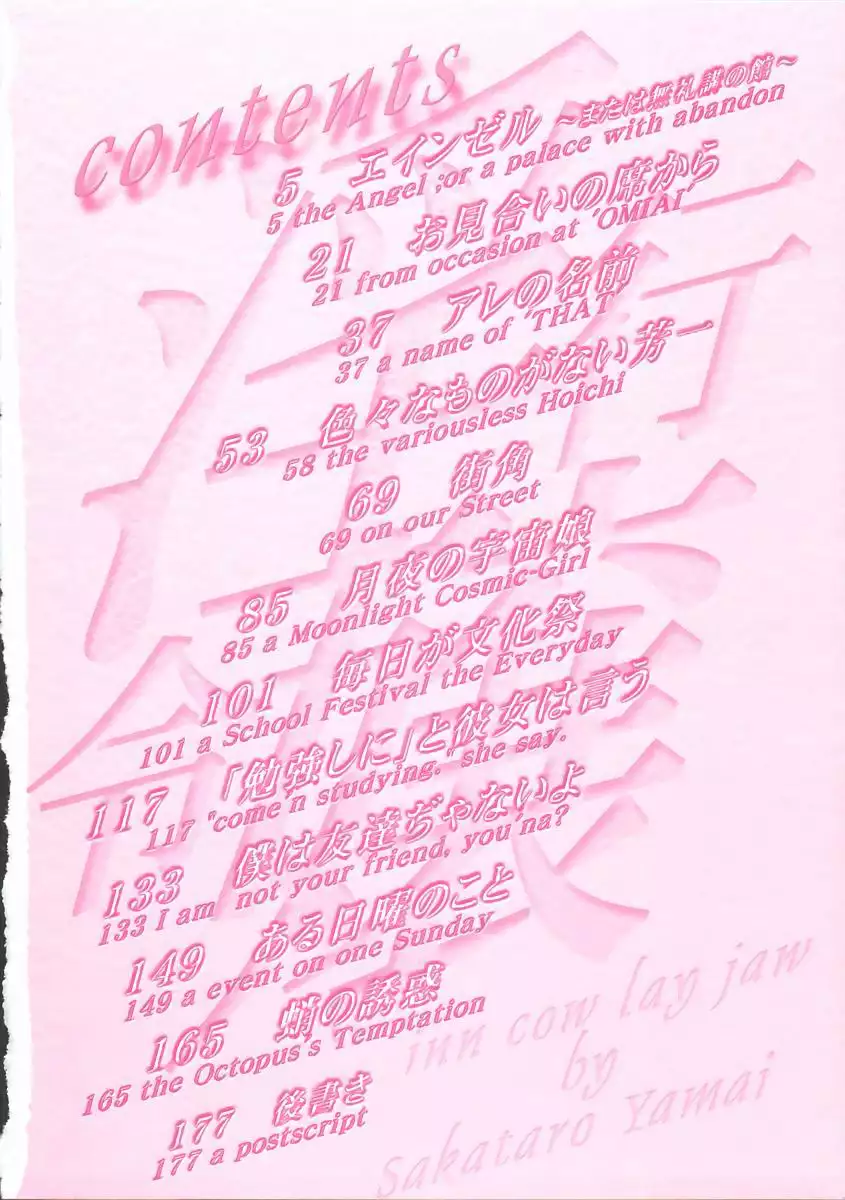 contents
5 エインゼル ～または無札講の館～
5 the Angel ;or a palace with abandon
21 お見合いの席から
21 from occasion at 'OMIAI'
37 アレの名前
37 a name of 'THAT'
53 色々なものがない芳一
58 the variousless Hoichi
69 街角
69 on our Street
85 月夜の宇宙娘
85 a Moonlight Cosmic-Girl
101 毎日が文化祭
101 a School Festival the Everyday
117 「勉強しに」と彼女は言う
117 "come'n studying." she say.
133 僕は友達ぢゃないよ
133 I am not your friend, you'na?
149 ある日曜のこと
149 a event on one Sunday
165 蛸の誘惑
165 the Octopus's Temptation
177 後書き
177 a postscript
inn cow lay jaw
by
Sakataro Yamai